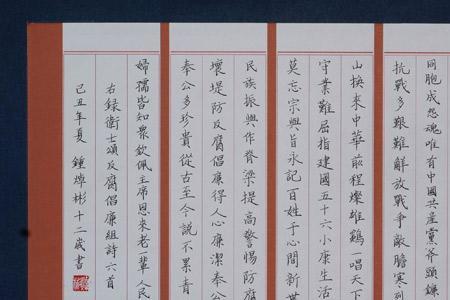 同胞成怨魂唯有中國共產黨斧頭鐮
抗戰多艱難解放戰爭敵膽寒列
山換來中華前程燦雄鷄一唱天下
守業難屈指建國五十六小康生活
莫忘宗與旨永記百姓于心間新世
民族振興作脊梁提高警惕防腐
壞堤防反腐倡廉得人心廉潔奉公
奉公多珍貴從古至今說不累青
婦孺皆知衆欽佩主席恩來老輩人民
右録衛士頌反腐倡廉組詩六首
己丑年夏鍾 彬十二歲書